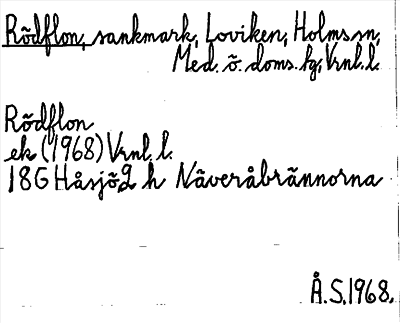 Rödflon, sankmark, Loviken, Holms sn,
Med. ö. doms. fg, Vrnl. l.
Rödflon
ek (1968) Vrnl. l.
18G Håsjö 2 h Näveråbrännorna
Å.S. 1968.